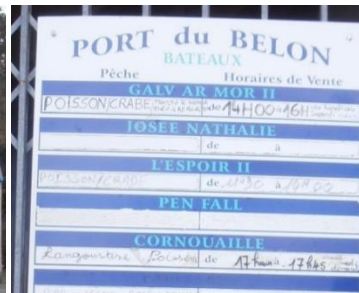 PORT du BELON
BATEAUX
Pêche Horaires de Vente
GALV AR MOR II
POISSON/CRABE de 14H00 à 16H
JOSÉE NATHALIE
de à
L'ESPOIR II
POISSON/CRABE de à
PEN FALL
CORNOUAILLE
Langoustine de 17h à 17h45